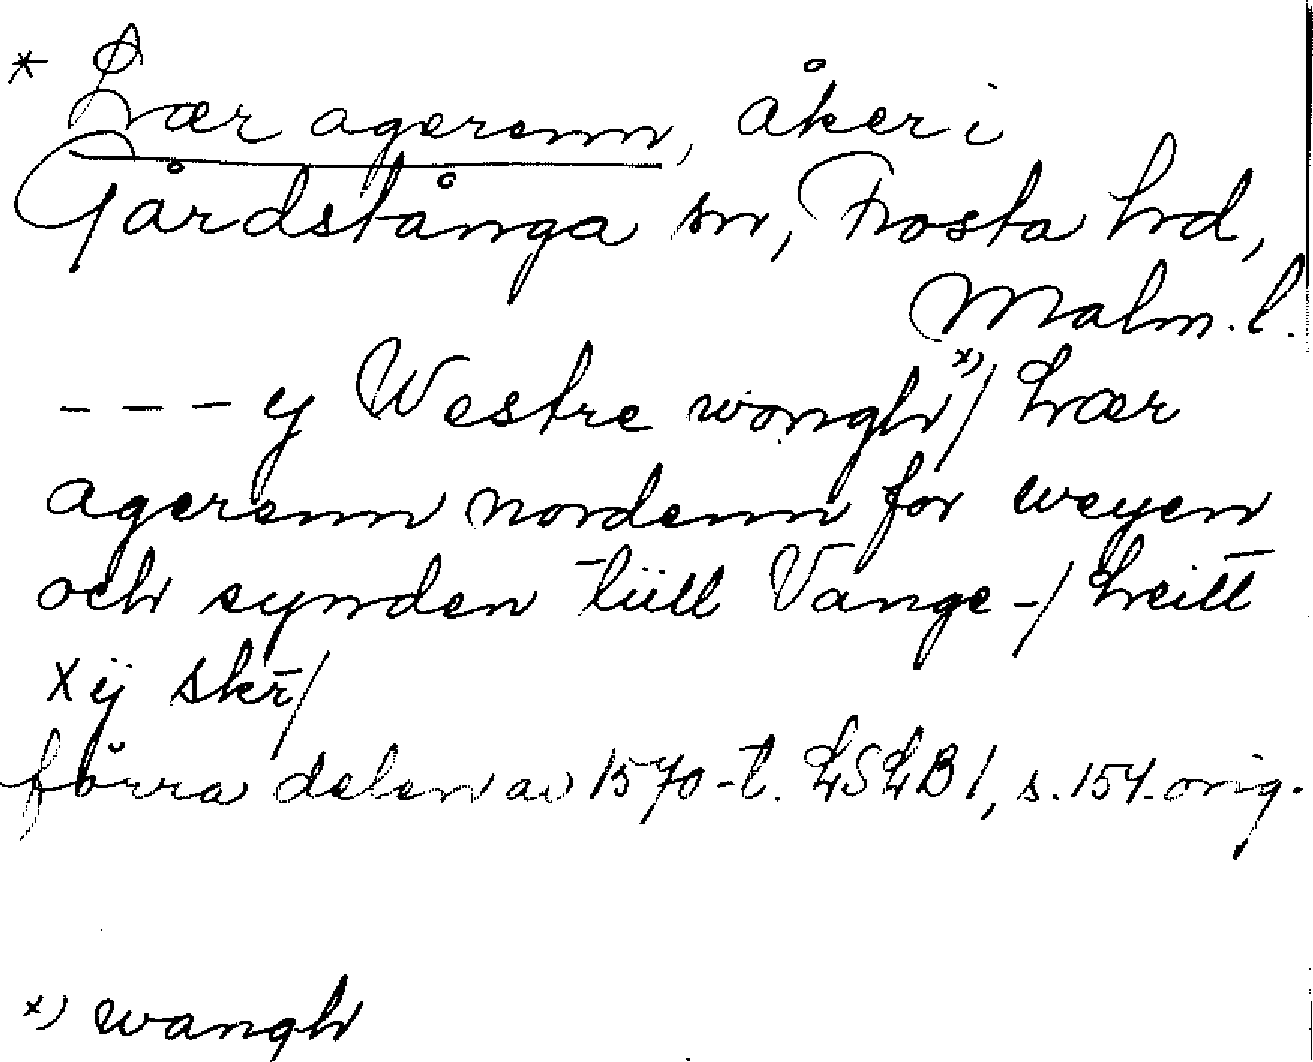 * Hær agerenn, åker i
Gårdstånga sn, Frosta hd,
Malm.l.
--- y Westre wongh x)/ hær
agerenn nordenn for weyen
och synden tiill Vange -/ heitt
xij skr/
förra delen av 1570-t. LSLB 1, s. 154. orig.
x) wangh